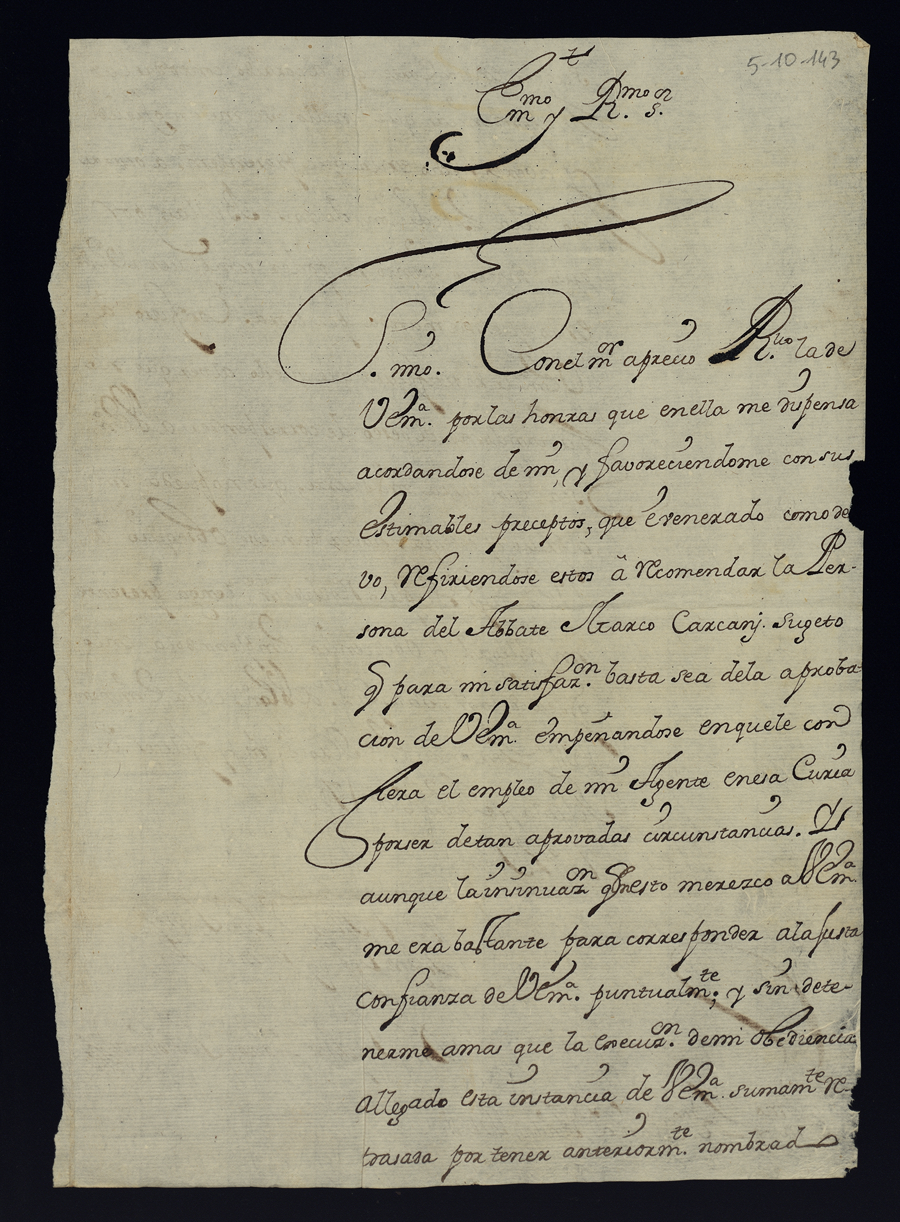 5-10-143
Em.mo y R.mo S.or
S. mio. Con el m.or aprecio R.vo la de
VEm.a por las honras que en ella me dispensa
acordandose de mi, y favoreciendome con sus
estimables preceptos, que è venerado como de
vo, refiriendose estos â recomendar la Per-
sona del Abbate Marco Carcanj. sugeto
q para mi satisfaz.on basta sea dela aproba-
cion de VEm.a empeñandose en quele con
fiera el empleo de mi Agente en esa Curia
por ser de tan aprovadas circunstancias. Y
aunque la insinuaz.on q en esto merezco a VEm.a
me era bastante para corresponder a la justa
confianza de VEm.a puntualm.te; y sin dete-
nerme a mas que la execuz.on de mi obediencia
allegado esta instancia de VEm.a sumam.te re-
trasada por tener anteriorm.te nombrad